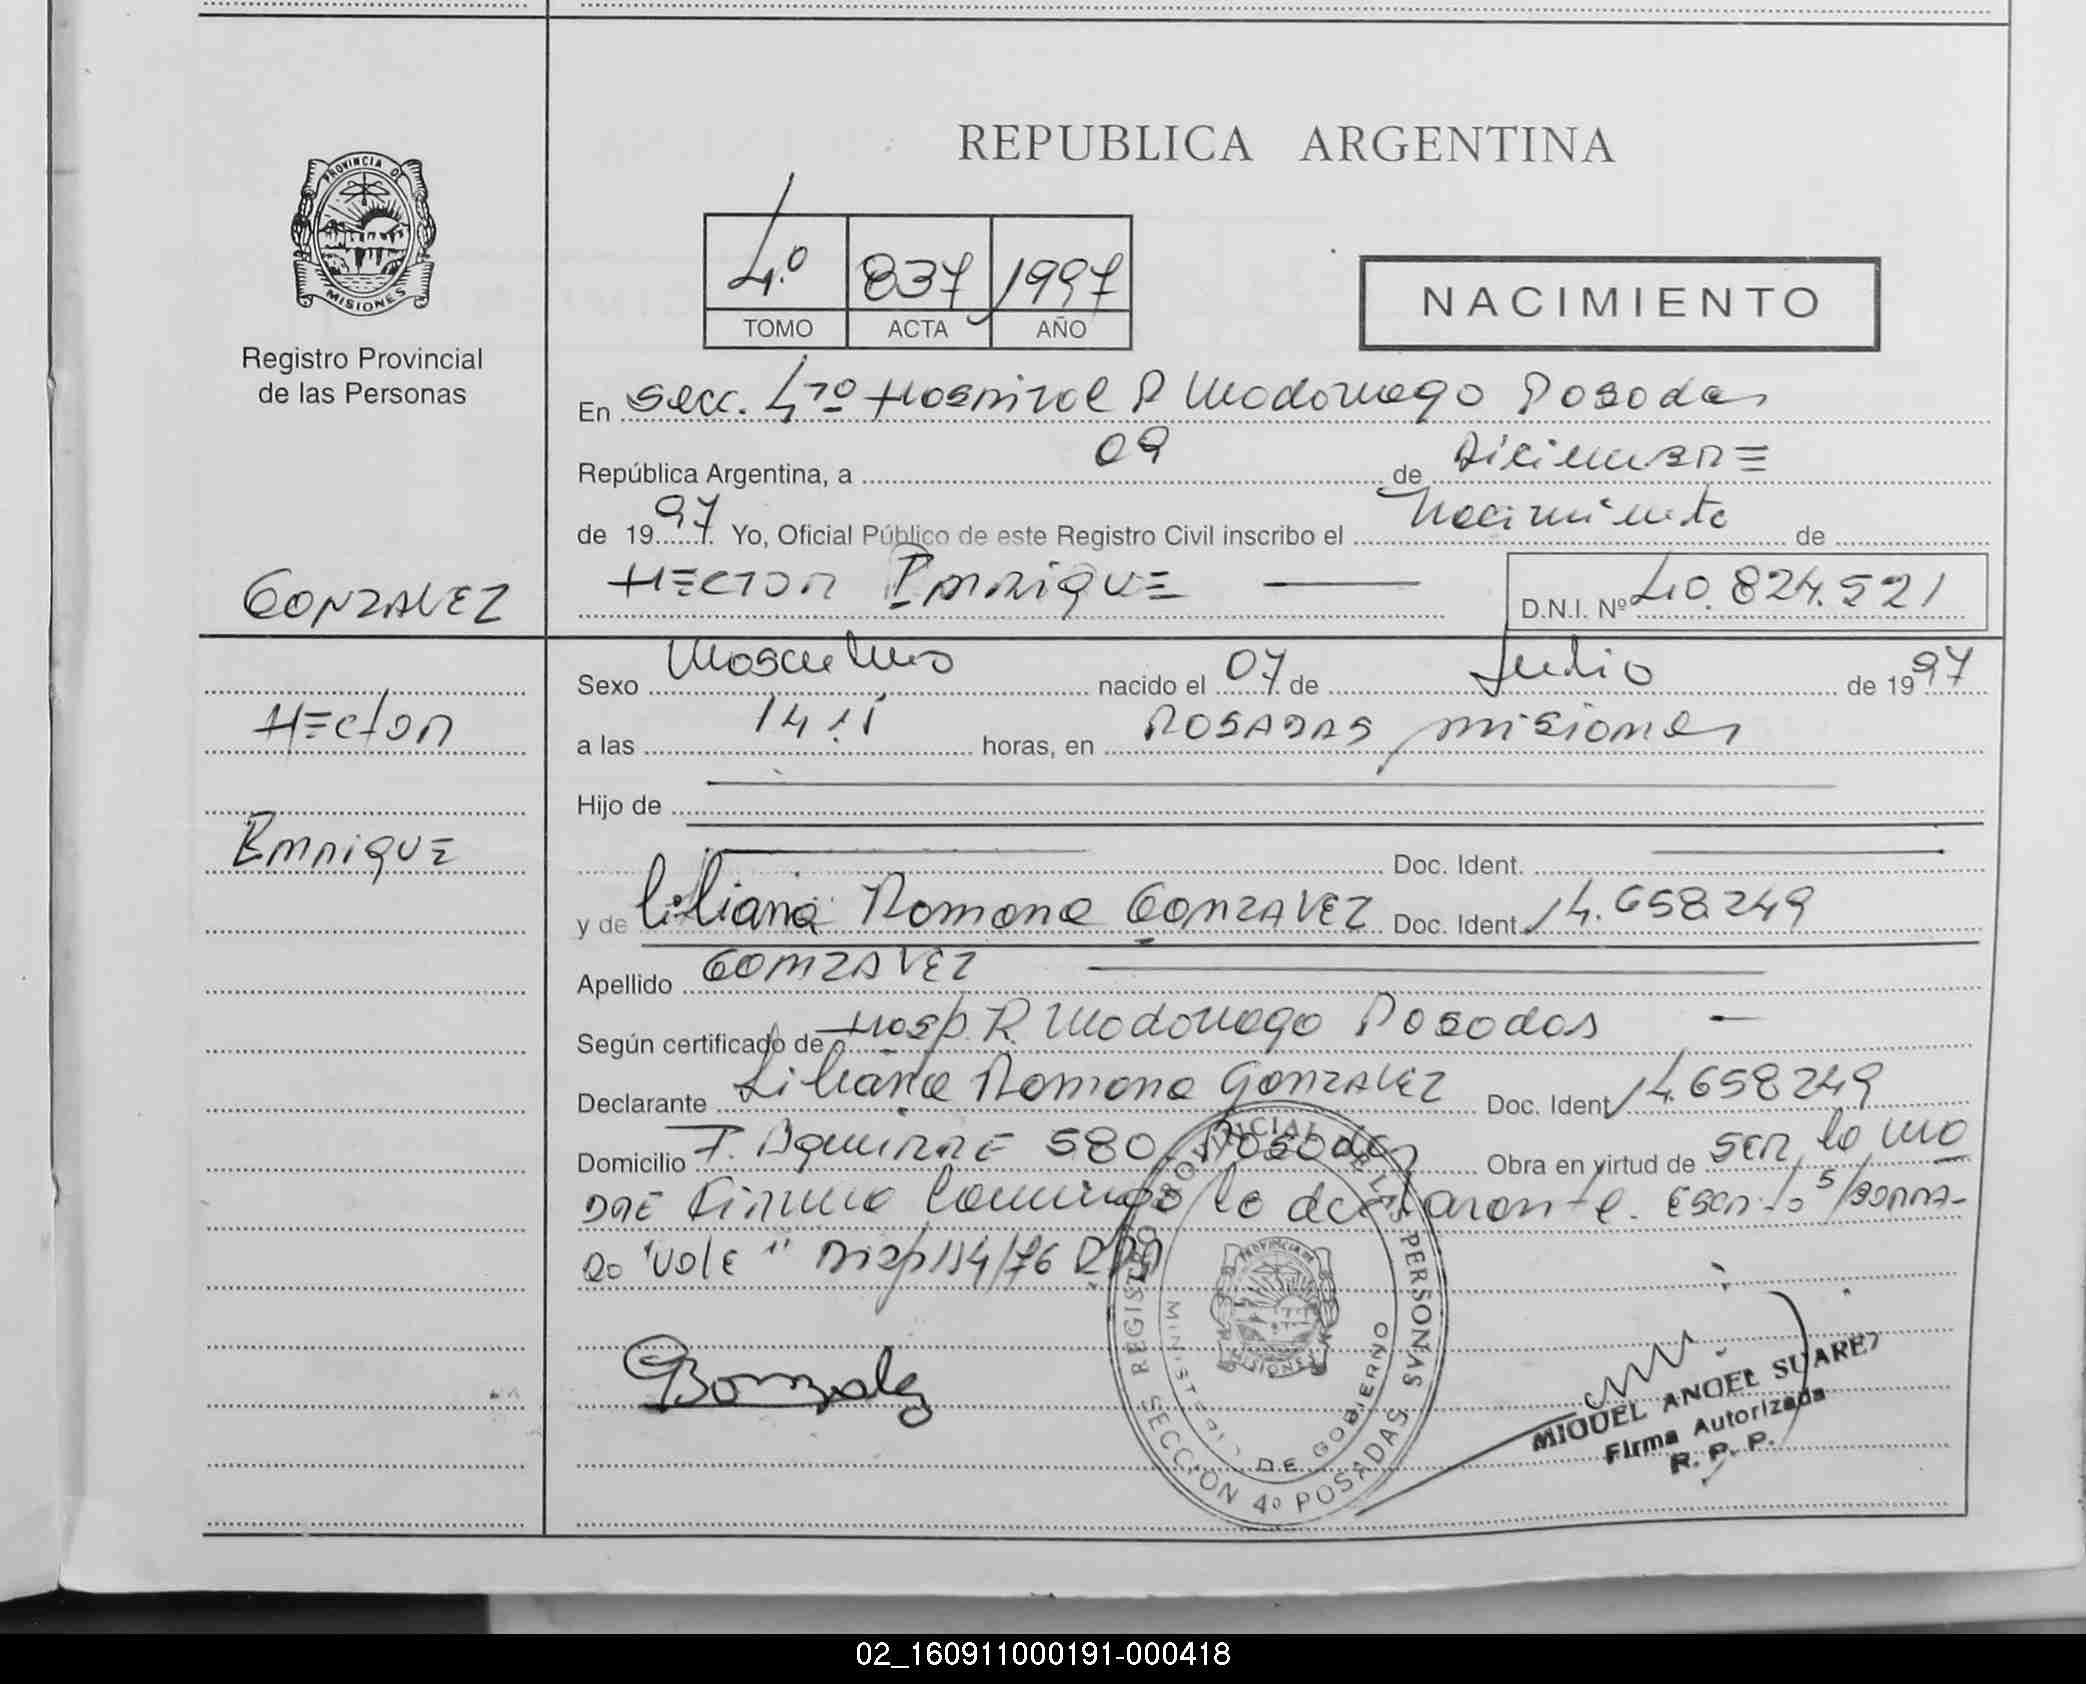 REPUBLICA ARGENTINA
PROVINCIA DE
MISIONES
Registro Provincial
de las Personas
4.º 837 1997
TOMO ACTA AÑO
NACIMIENTO
En Secc. 4ta Hospital R Madariaga Posadas
República Argentina, a 09 de Diciembre
de 1997 Yo, Oficial Público de este Registro Civil inscribo el Nacimiento de
HECTOR ENRIQUE
D.N.I. Nº 40.824.521
GONZALEZ
Hector
Enrique
Sexo Masculino nacido el 07 de Julio de 1997
a las 14 horas, en POSADAS, misiones
Hijo de
Doc. Ident.
y de Liliana Ramona GONZALEZ Doc. Ident. 14.658.249
Apellido GONZALEZ
Según certificado de Hosp. R. Madariaga Posadas
Declarante Liliana Ramona Gonzalez Doc. Ident 14.658249
Domicilio F. Aguirre 580 Posadas Obra en virtud de ser la ma
dre Firma Conmigo la declarante. Escr. s/borra-
do "Vale" Disp 114/76 RPP
Gonzalez
REGISTRO PROVINCIAL DE LAS PERSONAS
MINISTERIO DE GOBIERNO
PROVINCIA DE
MISIONES
SECCION 4º POSADAS
MIGUEL ANGEL SUAREZ
Firma Autorizada
R. P. P.
02_160911000191-000418